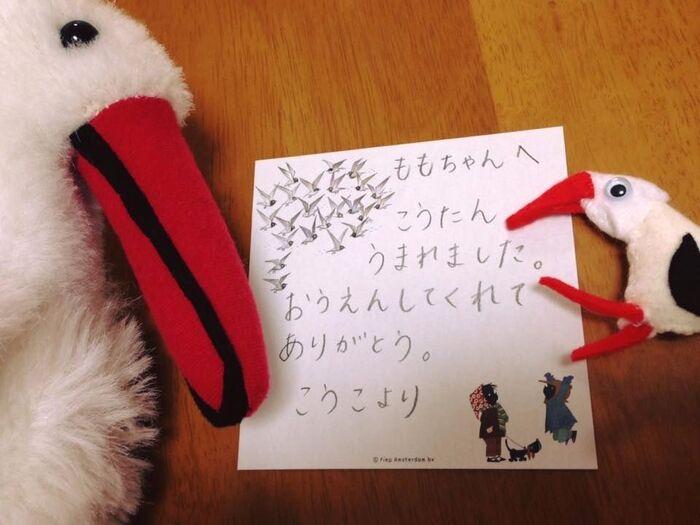 ももちゃんへ
こうたん
うまれました。
おうえんしてくれて
ありがとう。
こうこより
© Fiep Amsterdam bv